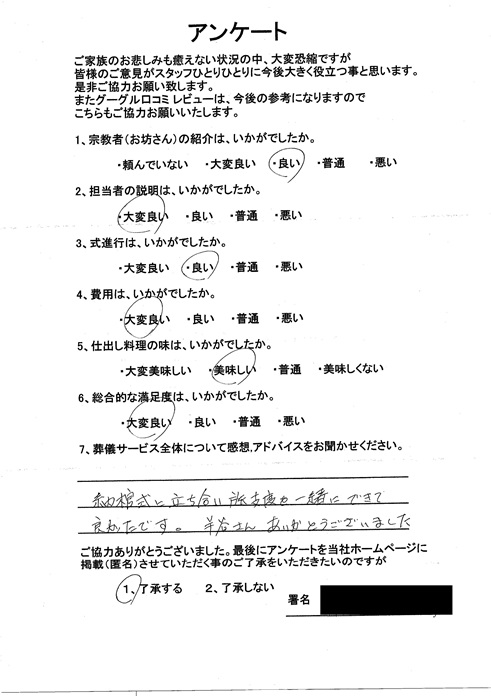 アンケート
ご家族のお悲しみも癒えない状況の中、大変恐縮ですが
皆様のご意見がスタッフひとりひとりに今後大きく役立つ事と思います。
是非ご協力お願い致します。
またグーグル口コミ レビューは、今後の参考になりますので
こちらもご協力お願いいたします。
1、宗教者(お坊さん)の紹介は、いかがでしたか。
・頼んでいない ・大変良い ・良い ・普通 ・悪い
2、担当者の説明は、いかがでしたか。
・大変良い ・良い ・普通 ・悪い
3、式進行は、いかがでしたか。
・大変良い ・良い ・普通 ・悪い
4、費用は、いかがでしたか。
・大変良い ・良い ・普通 ・悪い
5、仕出し料理の味は、いかがでしたか。
・大変美味しい ・美味しい ・普通 ・美味しくない
6、総合的な満足度は、いかがでしたか。
・大変良い ・良い ・普通 ・悪い
7、葬儀サービス全体について感想,アドバイスをお聞かせください。
納棺式に立ち合い旅支度も一緒にできて
良かったです。 さん ありがとうございました
ご協力ありがとうございました。最後にアンケートを当社ホームページに
掲載(匿名)させていただく事のご了承をいただきたいのですが
1、了承する 2、了承しない
署名